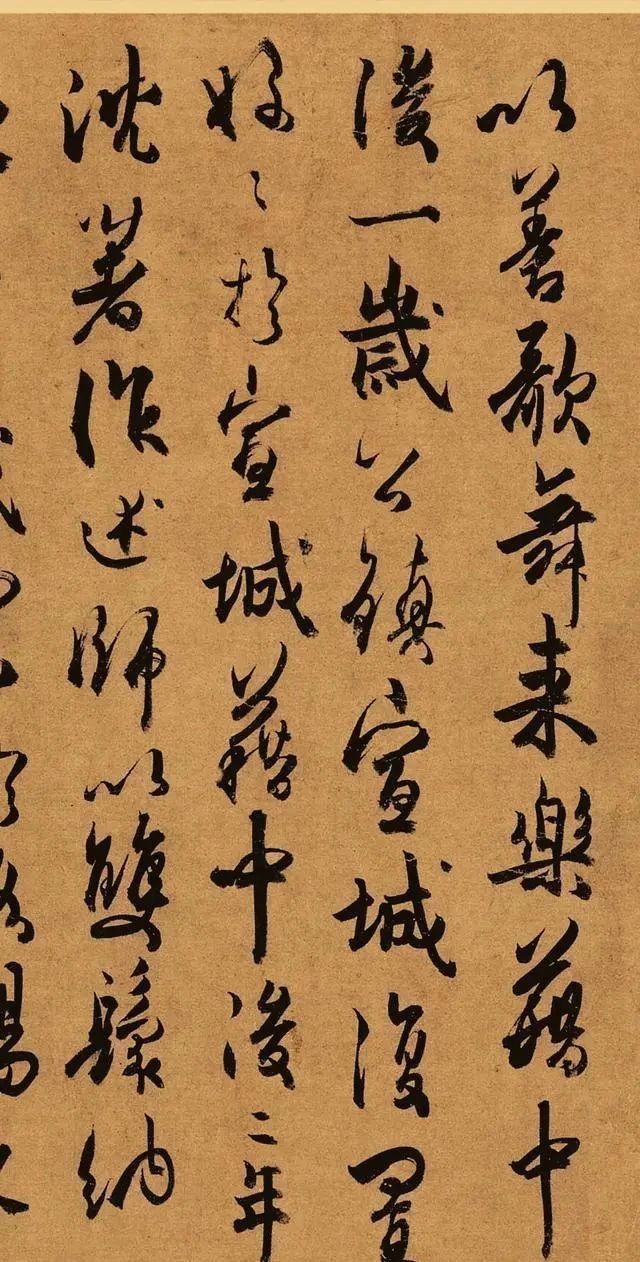 以善歌舞来樂籍中
後一歲公鎮宣城復置
好〻於宣城籍中後二年
沈著作述師以雙鬟納